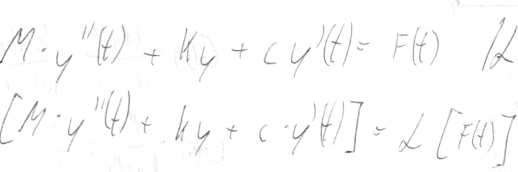 M·y''(t) + ky + cy'(t) = F(t) | L
[M·y''(t) + ky + c·y'(t)] = L [F(t)]